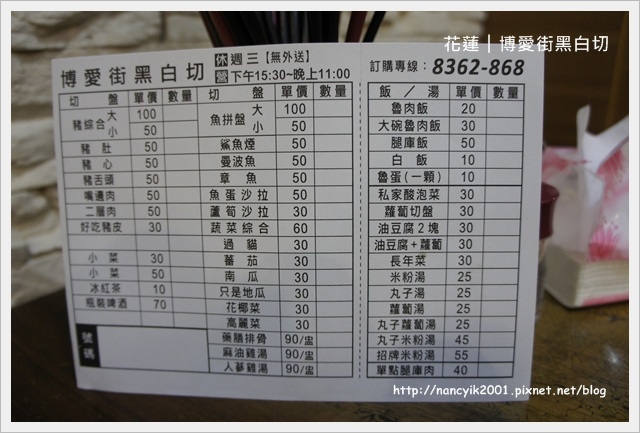 花蓮│博愛街黑白切
博愛街黑白切 休 週三【無外送】
營 下午15:30~晚上11:00
訂購專線：8362-868
切 盤 單價 數量 切 盤 單價 數量 飯 ／ 湯 單價 數量
豬綜合 大 100 魚拼盤 大 100 魯肉飯 20
小 50 小 50 大碗魯肉飯 30
豬 肚 50 鯊魚煙 50 腿庫飯 50
豬 心 50 曼波魚 50 白 飯 10
豬舌頭 50 章 魚 50 魯蛋(一顆) 10
嘴邊肉 50 魚蛋沙拉 50 私家酸泡菜 30
二層肉 50 蘆筍沙拉 30 蘿蔔切盤 30
好吃豬皮 30 蔬菜綜合 60 油豆腐2塊 30
過 貓 30 油豆腐+蘿蔔 30
小 菜 30 蕃 茄 30 長年菜 30
小 菜 50 南 瓜 30 米粉湯 25
冰紅茶 10 只是地瓜 30 丸子湯 25
瓶裝啤酒 70 花椰菜 30 蘿蔔湯 25
號碼 高麗菜 30 丸子蘿蔔湯 25
藥膳排骨 90/盅 丸子米粉湯 45
麻油雞湯 90/盅 招牌米粉湯 55
人蔘雞湯 90/盅 單點腿庫肉 40
http://nancyik2001.pixnet.net/blog